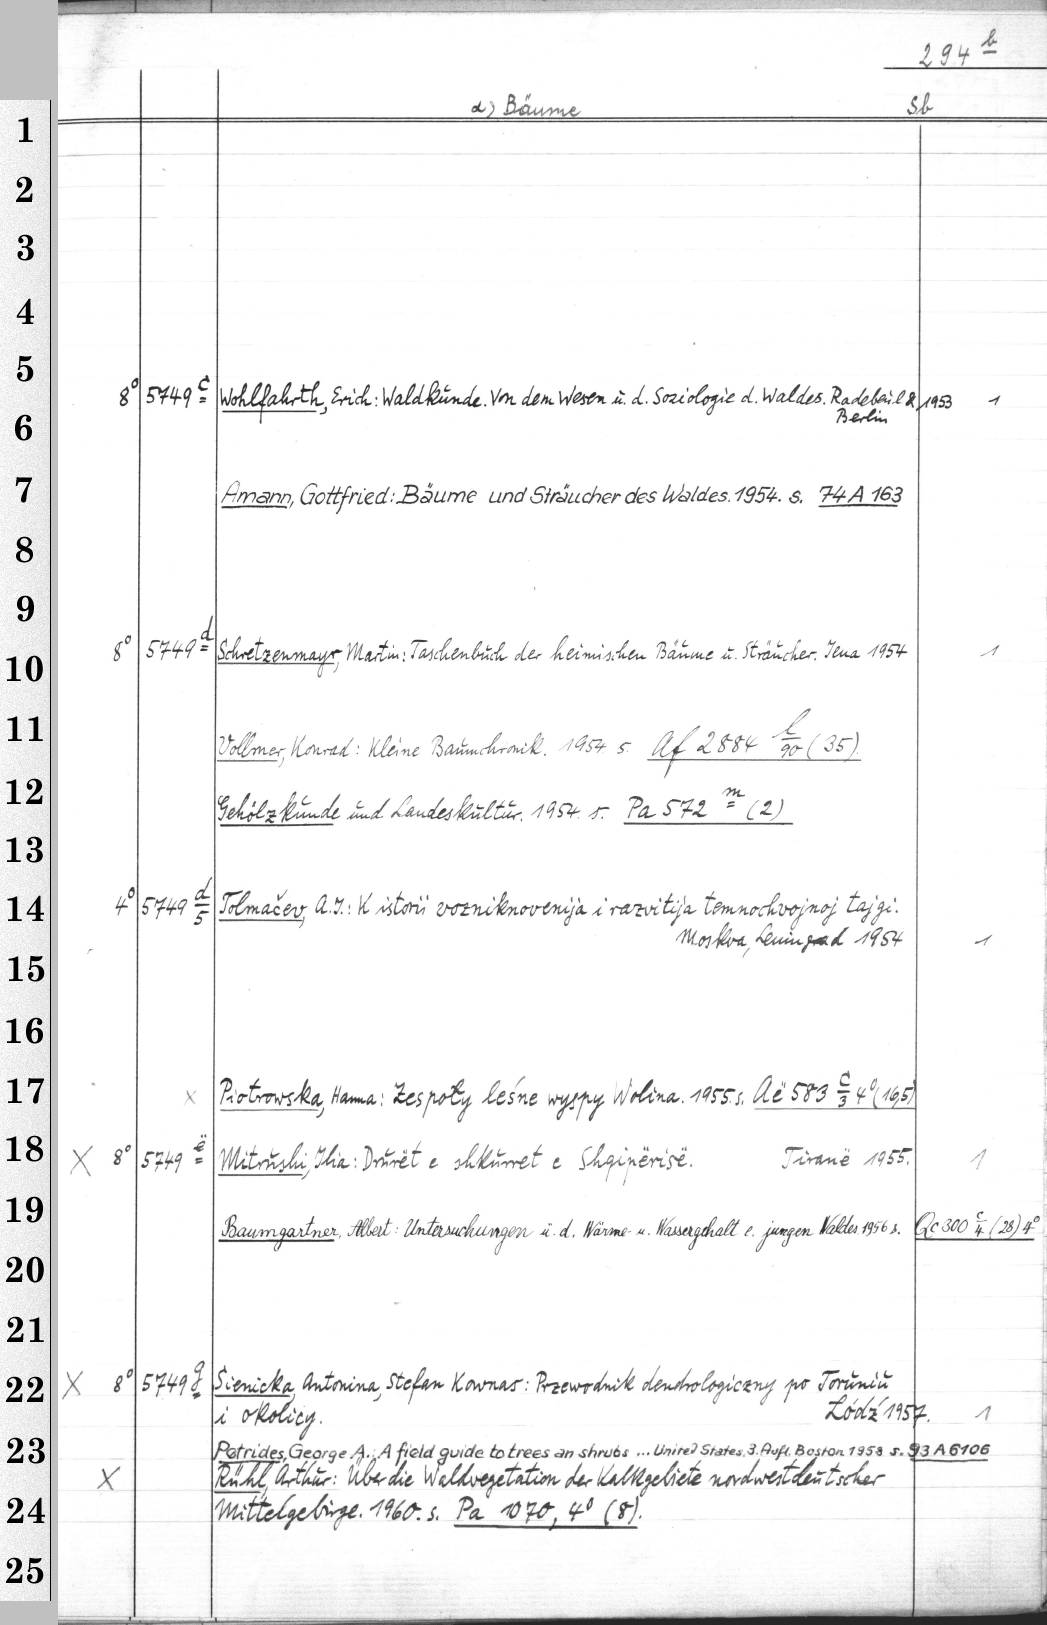 294 b
α) Bäume Sb
1
2
3
4
5
8° 5749 c Wohlfahrth, Erich: Waldkunde. Von dem Wesen u. d. Soziologie d. Waldes. Radebeul & 1953 1
Berlin
6
7 Amann, Gottfried: Bäume und Sträucher des Waldes. 1954. s. 74 A 163
8
9
8° 5749 d Schretzenmayr, Martin: Taschenbuch der heimischen Bäume u. Sträucher. Jena 1954 1
10
11 Vollmer, Konrad: Kleine Baumchronik. 1954 s. Af 2884 l/90 (35)
12 Gehölzkunde und Landeskultur. 1954. s. Pa 572 m (2)
13
14 4° 5749 d/5 Tolmačev, A.I.: K istorii vozniknovenija i razvitija temnochvojnoj tajgi.
Moskva, Leningrad 1954 1
15
16
17 x Piotrowska, Hanna: Zespoły leśne wyspy Wolina. 1955. s. Aë 583 c/3 4° (16,5)
18 X 8° 5749 ë Mitrushi, Ilia: Drurët e shkurret e Shqipërisë. Tiranë 1955. 1
19 Baumgartner, Albert: Untersuchungen ü. d. Wärme- u. Wassergehalt e. jungen Waldes 1956 s. Qc 300 c/4 (28) 4°
20
21
22 X 8° 5749 g Sienicka, Antonina, Stefan Kownas: Przewodnik dendrologiczny po Toruniu
i okolicy. Łódź 1957. 1
23 Petrides, George A.: A field guide to trees an shrubs ... United States. 3. Aufl. Boston 1958 s. 93 A 6106
X Rühl, Arthur: Über die Waldvegetation der Kalkgebiete nordwestdeutscher
24 Mittelgebirge. 1960. s. Pa 1070, 4° (8).
25